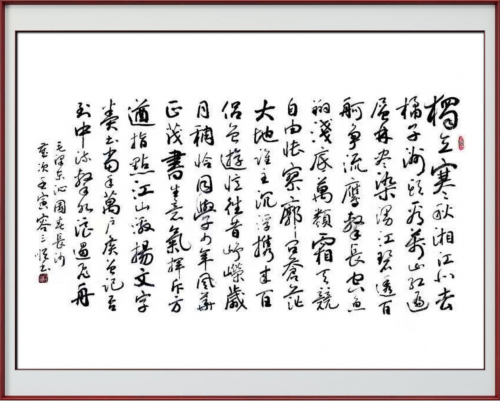 獨立寒秋湘江北去
橘子洲頭看萬山紅遍
層林尽染漫江碧透百
舸爭流鷹擊長空魚
翔淺底萬類霜天競
自由悵寥廓問蒼茫
大地誰主沉浮攜來百
侶曾遊憶往昔崢嶸歲
月稠恰同學少年風華
正茂書生意氣揮斥方
遒指點江山激揚文字
糞土當年萬戶侯曾記否
到中流擊水浪遏飛舟
毛澤東沁園春長沙
歲次壬寅